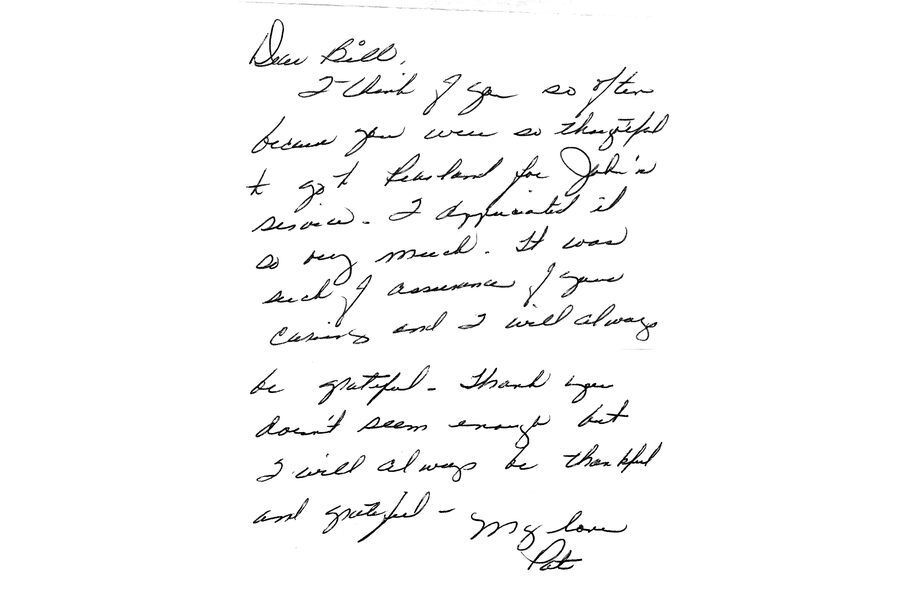 Dear Bill,
I think of you so often
because you were so thoughtful
to go to Pearland for John's
service. I appreciated it
so very much. It was
such of assurance of your
caring and I will always
be grateful - Thank you
doesn't seem enough but
I will always be thankful
and grateful -
My love
Pat